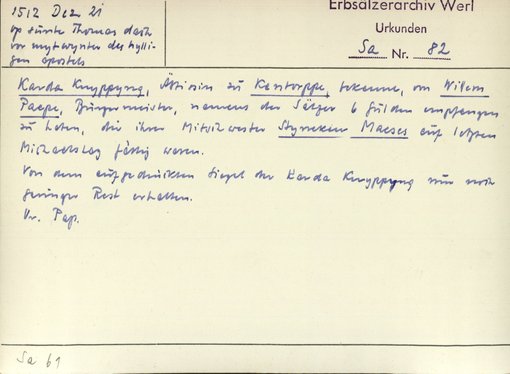 1512 Dez 21
op sunte Thomas dach
vor mytwynter des hylli-
gen apostels
Erbsälzerarchiv Werl
Urkunden
Sa Nr. 82
Karda Knyppyng, Äbtissin zu Kentorppe, bekennt, von Wilem
Paepe, Bürgermeister, namens der Sälzer 6 Gulden empfangen
zu haben, die ihrer Mitschwester Styneken Maeses auf letzten
Michaelstag fällig waren.
Von dem aufgedrückten Siegel der Karda Knyppyng nur noch
geringer Rest erhalten.
Or. Pap.
Sa 61